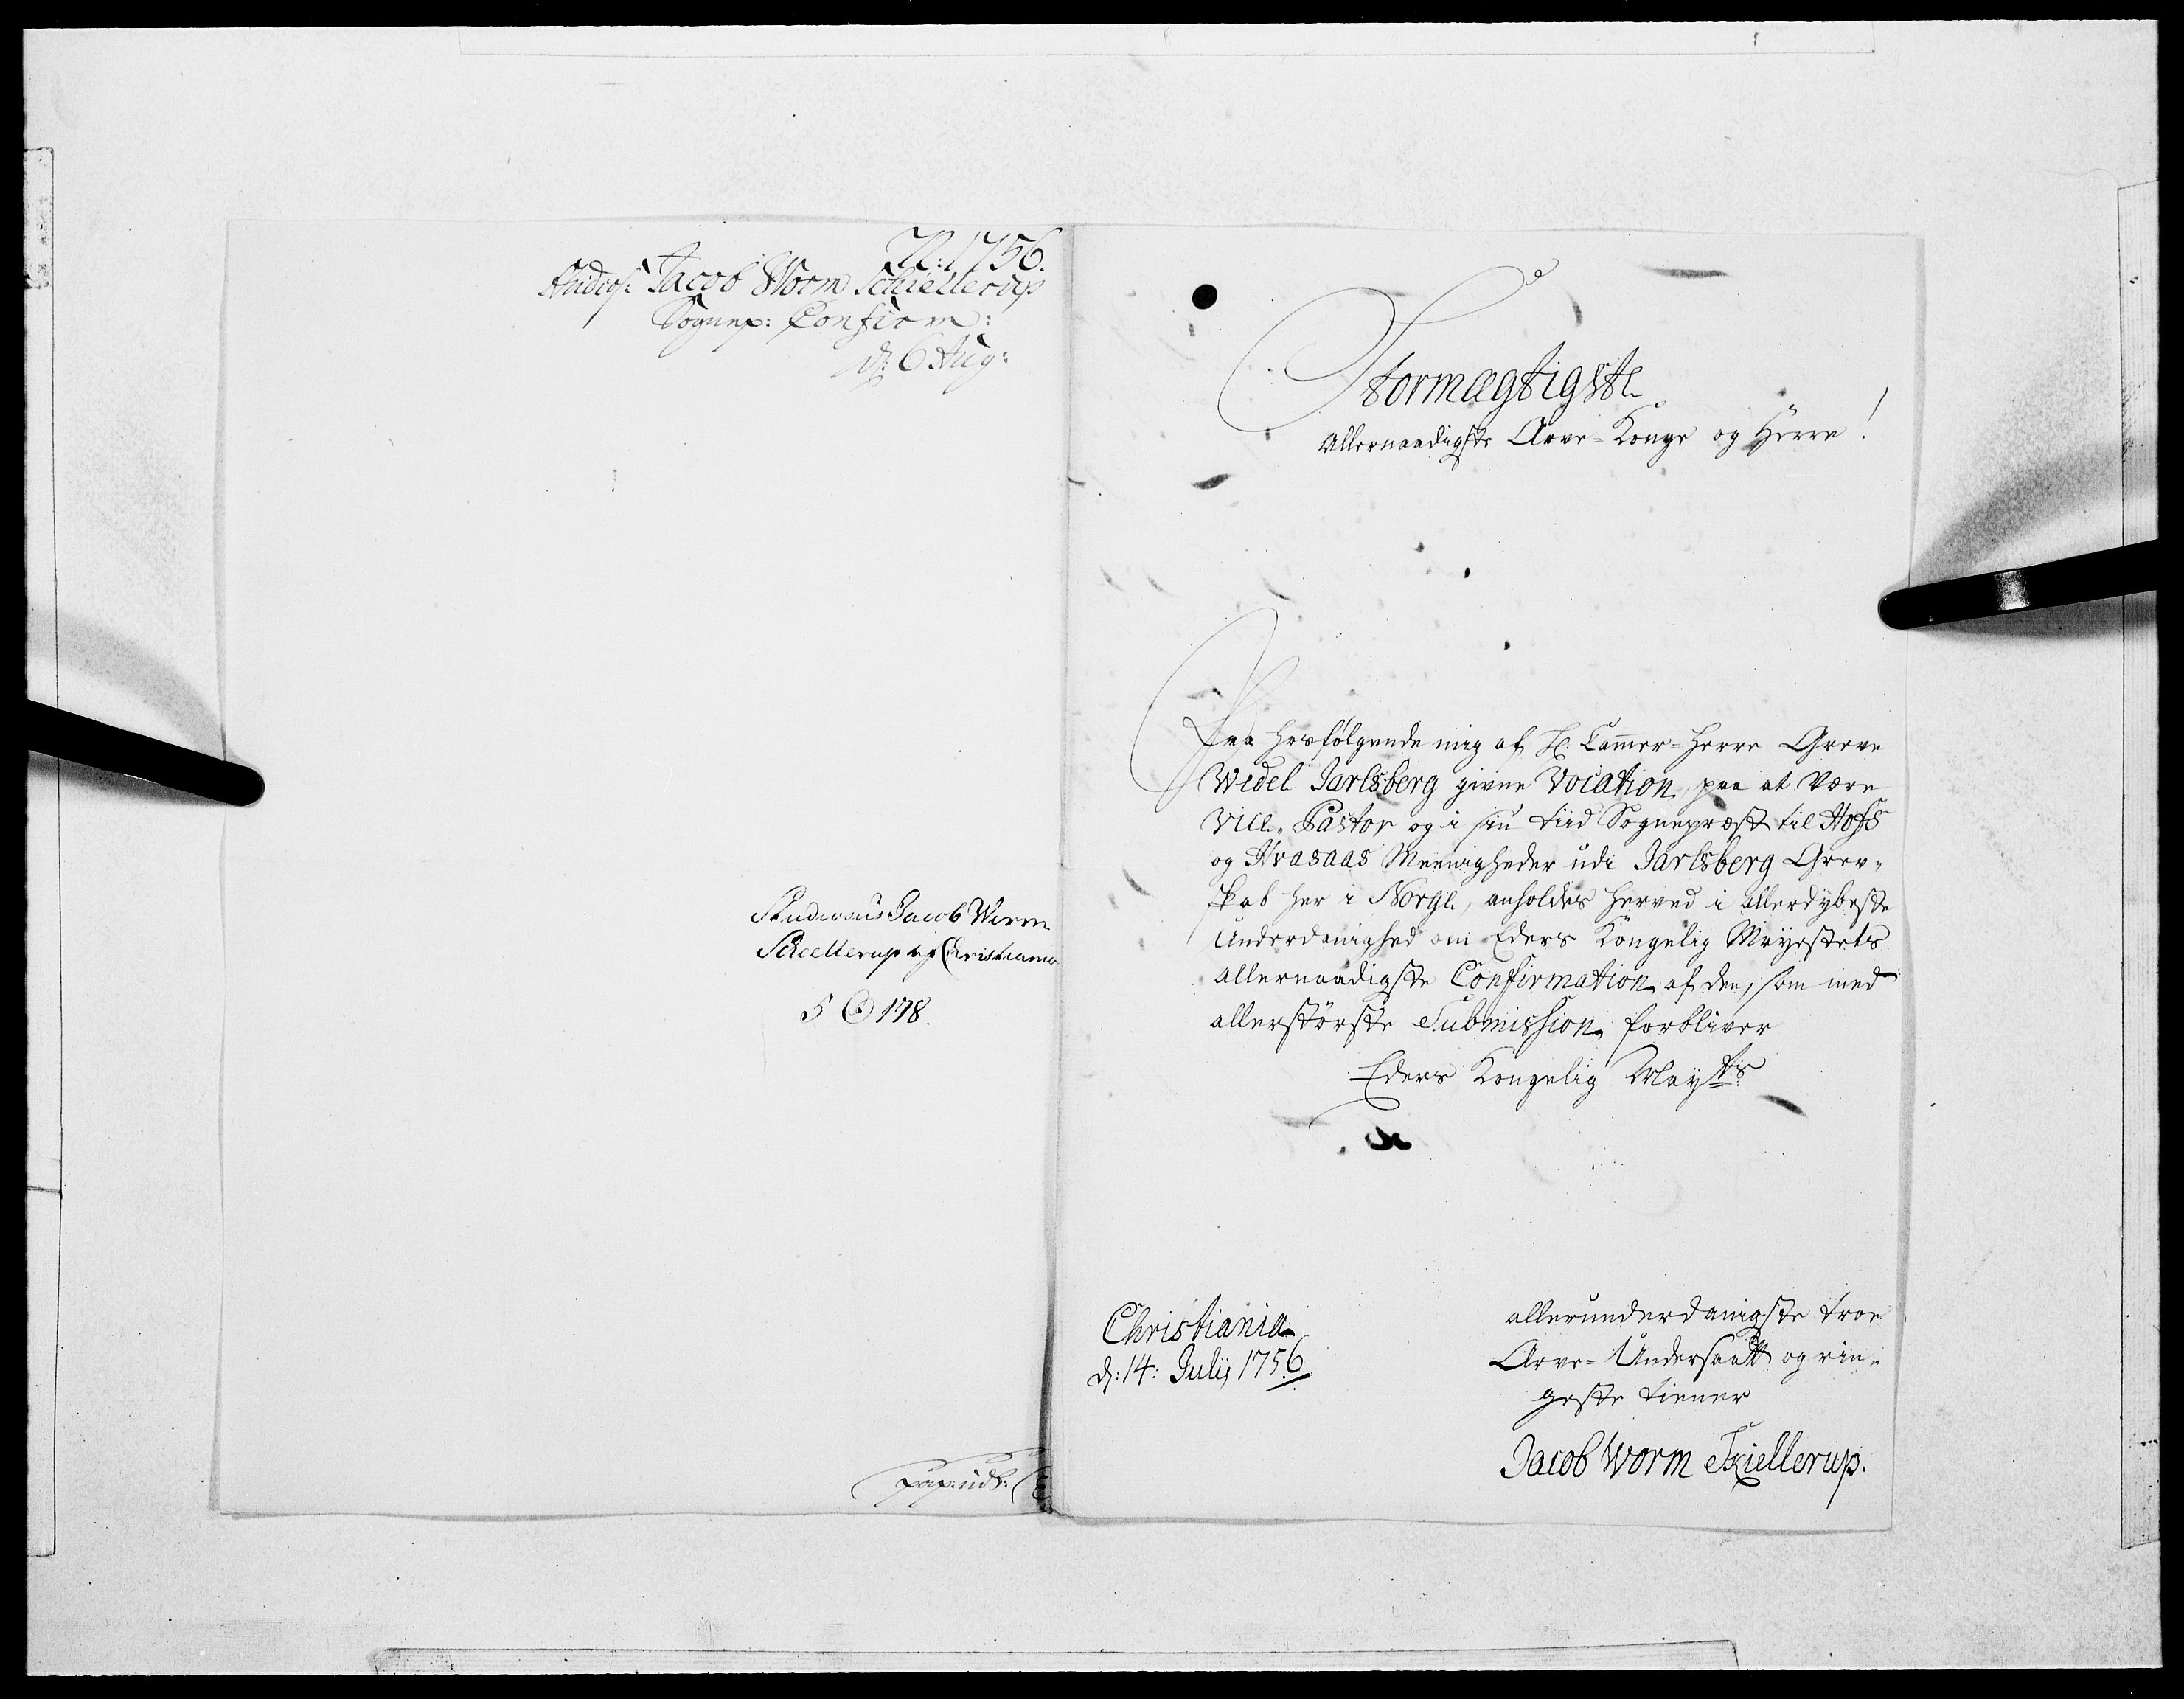 N: 1756.
Studios: Jacob Worm Schiellerup
Sognep: Confirm:
d: 6 Aug:
Studiosus Jacob Worm
Schellerup af Christiania
178.
pag: udt:
Stormægtigste
Allernaadigste Arve-Konge og Herre!
Paa hosfølgende mig af H. Cammer-Herre Greve
Wedel Jarlsberg givne Vocation, paa at være
Vice-Pastor og i sin tiid Sognepræst til Hofs
og Hvasaas Meenigheder udi Jarlsberg Grev-
skab her i Norge, anholdes herved i allerdybeste
Underdanighed om Eders Kongelig Mayestets
allernaadigste Confirmation af den, som med
allerstørste Submission forbliver
Eders Kongelig Mayts
Christiania
d: 14: Julij 1756
allerunderdanigste troe
Arve-Undersaatt og rin-
geste tiener
Jacob Worm Skiellerup.